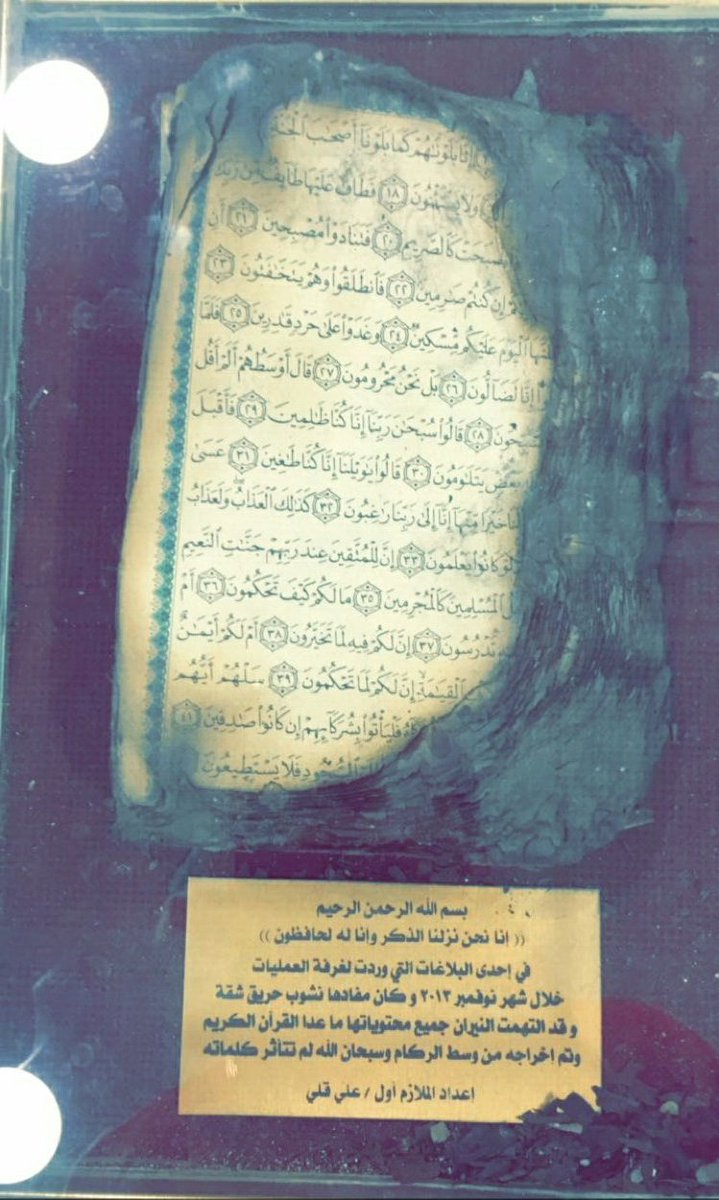 إِنَّا بَلَوْنَاهُمْ كَمَا بَلَوْنَا أَصْحَابَ الْجَنَّةِ
وَلَا يَسْتَثْنُونَ ١٨ فَطَافَ عَلَيْهَا طَائِفٌ مِّن رَّبِّكَ
كَالصَّرِيمِ ٢٠ فَتَنَادَوْا مُصْبِحِينَ ٢١ أَنِ
إِن كُنتُمْ صَارِمِينَ ٢٢ فَانطَلَقُوا وَهُمْ يَتَخَافَتُونَ ٢٣
الْيَوْمَ عَلَيْكُم مِّسْكِينٌ ٢٤ وَغَدَوْا عَلَىٰ حَرْدٍ قَادِرِينَ ٢٥ فَلَمَّا
إِنَّا لَضَالُّونَ ٢٦ بَلْ نَحْنُ مَحْرُومُونَ ٢٧ قَالَ أَوْسَطُهُمْ أَلَمْ أَقُل
٢٨ قَالُوا سُبْحَانَ رَبِّنَا إِنَّا كُنَّا ظَالِمِينَ ٢٩ فَأَقْبَلَ
يَتَلَاوَمُونَ ٣٠ قَالُوا يَا وَيْلَنَا إِنَّا كُنَّا طَاغِينَ ٣١ عَسَىٰ
خَيْرًا مِّنْهَا إِنَّا إِلَىٰ رَبِّنَا رَاغِبُونَ ٣٢ كَذَٰلِكَ الْعَذَابُ وَلَعَذَابُ
لَوْ كَانُوا يَعْلَمُونَ ٣٣ إِنَّ لِلْمُتَّقِينَ عِندَ رَبِّهِمْ جَنَّاتِ النَّعِيمِ
الْمُسْلِمِينَ كَالْمُجْرِمِينَ ٣٥ مَا لَكُمْ كَيْفَ تَحْكُمُونَ ٣٦ أَمْ
تَدْرُسُونَ ٣٧ إِنَّ لَكُمْ فِيهِ لَمَا تَخَيَّرُونَ ٣٨ أَمْ لَكُمْ أَيْمَانٌ
الْقِيَامَةِ إِنَّ لَكُمْ لَمَا تَحْكُمُونَ ٣٩ سَلْهُمْ أَيُّهُم
فَلْيَأْتُوا بِشُرَكَائِهِمْ إِن كَانُوا صَادِقِينَ ٤١
السُّجُودِ فَلَا يَسْتَطِيعُونَ
بسم الله الرحمن الرحيم
(( إنا نحن نزلنا الذكر وإنا له لحافظون ))
في إحدى البلاغات التي وردت لغرفة العمليات
خلال شهر نوفمبر ٢٠١٣ و كان مفادها نشوب حريق شقة
و قد التهمت النيران جميع محتوياتها ما عدا القرآن الكريم
وتم إخراجه من وسط الركام وسبحان الله لم تتأثر كلماته
إعداد الملازم أول / علي قلي